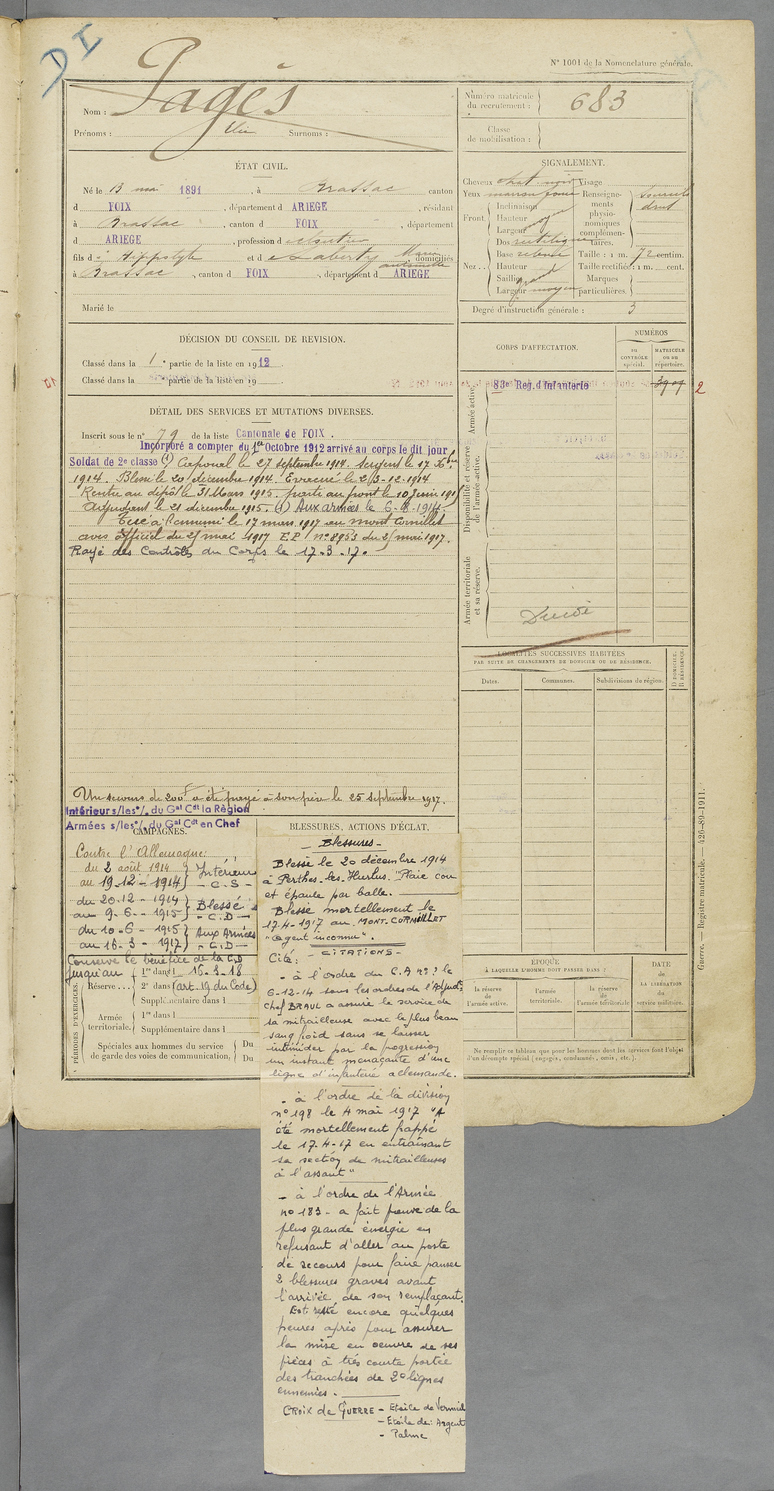 DI
N° 1001 de la Nomenclature générale.
Nom : Pagès
Prénoms : Surnoms :
Numéro matricule du recrutement : 683
Classe de mobilisation :
ÉTAT CIVIL.
Né le 13 mai 1891, à Brassac canton
d FOIX, département d ARIEGE, résidant
à Brassac, canton d FOIX, département
d ARIEGE, profession d
fils d'Hippolyte et d Marie antoinette domiciliés
à Brassac, canton d FOIX, département d ARIEGE
Marié le
SIGNALEMENT.
Cheveux chat. noir Visage
Yeux marron foncé Renseigne-
ments
physio-
nomiques
complémen-
taires.
sourcils
droit
Front. Inclinaison
Hauteur
Largeur
Nez. Dos rectiligne
Base
Hauteur grand
Saillie
Largeur moyen
Taille : 1 m. 72 centim.
Taille rectifiée : 1 m. cent.
Marques
particulières.
Degré d'instruction générale : 3
DÉCISION DU CONSEIL DE REVISION.
Classé dans la 1e partie de la liste en 1912
Classé dans la partie de la liste en 19
CORPS D'AFFECTATION.
NUMÉROS
AU CONTRÔLE spécial.
MATRICULE OU AU répertoire.
Armée active.
83e Reg. d'Infanterie
2
Disponibilité et réserve de l'armée active.
Armée territoriale et sa réserve.
Décédé
DÉTAIL DES SERVICES ET MUTATIONS DIVERSES.
Inscrit sous le n° 79 de la liste Cantonale de FOIX.
Incorporé à compter du 1er Octobre 1912 arrivé au corps le dit jour
Soldat de 2e classe (1) Caporal le 27 septembre 1914. Sergent le 17 Xbre
1914. Blessé le 20 décembre 1914. Evacué le 23-12-1914
Rentré au dépôt le 31 Mars 1915. parti au front le 10 Juin 1915
Adjudant le 21 décembre 1915. (1) Aux armées le 6-8-1914
Tué à l'ennemi le 17 mars 1917 au mont Cornillet
avis officiel du 25 mai 1917 E.P. n° 8953 du 25 mai 1917.
Rayé des Contrôles du Corps le 17-3-17.
Un secours de 200f a été payé à son père le 25 septembre 1917.
LOCALITÉS SUCCESSIVES HABITÉES
PAR SUITE DE CHANGEMENTS DE DOMICILE OU DE RÉSIDENCE.
Dates. Communes. Subdivisions de région. D DOMICILE. R RÉSIDENCE.
Intérieur s/les °/. du Gal Cdt la Région
Armées s/les °/. du Gal Cdt en Chef
CAMPAGNES.
Contre l'Allemagne:
du 2 août 1914 } Intérieur
au 19-12-1914 } - C.S -
du 20-12-1914 } Blessé
au 9-6-1915 } - C.D -
du 10-6-1915 } Aux Armées
au 16-3-1917 } - C.D -
Conserve le bénéfice de la C.D
jusqu'au 16-3-18
(art-19 du Code)
PÉRIODES D'EXERCICES.
Réserve... 1re dans l
2e dans l
Supplémentaire dans l
Armée territoriale. 1re dans l
Supplémentaire dans l
Spéciales aux hommes du service de garde des voies de communication. Du
Du
BLESSURES, ACTIONS D'ÉCLAT.
- Blessures -
Blessé le 20 décembre 1914
à Perthes-les-Hurlus. "Plaie cou
et épaule par balle.
Blessé mortellement le
17-4-1917 au MONT-CORNILLET
"agent inconnu".
- CITATIONS -
Cité:
- à l'ordre du C.A n° ? le
6-12-14 sous les ordres de l'Adjudt
Chef BRAUL a assuré le service de
sa mitrailleuse avec le plus beau
sang froid sans se laisser
intimider par la progression
un instant menaçante d'une
ligne d'infanterie allemande.
- à l'ordre de la division
n° 198 le 4 mai 1917 "A
été mortellement frappé
le 17-4-17 en entraînant
sa section de mitrailleuses
à l'assaut"
- à l'ordre de l'Armée
no 183 - a fait preuve de la
plus grande énergie en
refusant d'aller au poste
de secours pour faire panser
2 blessures graves avant
l'arrivée de son remplaçant.
Est resté encore quelques
heures après pour assurer
la mise en oeuvre de ses
pièces à très courte portée
des tranchées de 2e lignes
ennemies.
CROIX de GUERRE - Etoile de Vermeil
- Etoile de Argent
- Palme
ÉPOQUE
À LAQUELLE L'HOMME DOIT PASSER DANS :
la réserve de l'armée active. l'armée territoriale. la réserve de l'armée territoriale
DATE DE LA LIBÉRATION du service militaire.
Ne remplir ce tableau que pour les hommes dont les services font l'objet
d'un décompte spécial (engagés, condamnés, omis, etc.).
Guerre. — Registre matricule. — 426-89-1911.